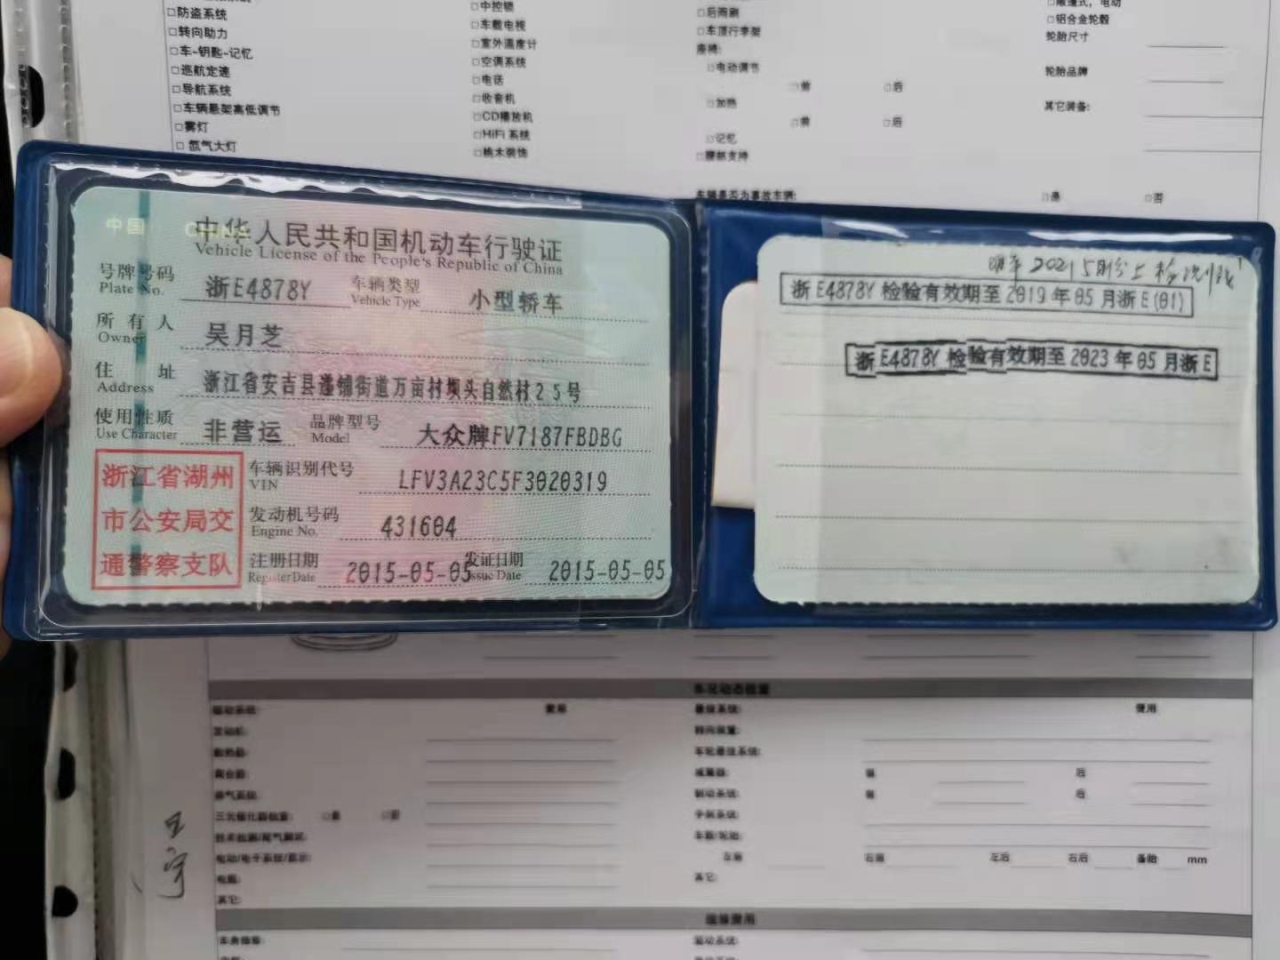 □防盗系统
□转向助力
□车-钥匙-记忆
□巡航定速
□导航系统
□车辆悬架高低调节
□雾灯
□氙气大灯
□中控锁
□车载电视
□室外温度计
□空调系统
□电话
□收音机
□CD播放机
□HiFi 系统
□桃木装饰
□后雨刷
□车顶行李架
座椅:
□电动调节
□前 □后
□加热
□前 □后
□记忆
□腰部支持
车辆是否为事故车辆: □是 □否
□铝合金轮毂
轮胎尺寸
轮胎品牌
其它装备:
中国 CHINA
中华人民共和国机动车行驶证
Vehicle License of the People's Republic of China
号牌号码 浙E4878Y 车辆类型 小型轿车
Plate No. Vehicle Type
所有人 吴月芝
Owner
住址 浙江省安吉县递铺街道万亩村坝头自然村25号
Address
使用性质 非营运 品牌型号 大众牌FV7187FBDBG
Use Character Model
浙江省湖州
市公安局交
通警察支队
车辆识别代号 LFV3A23C5F3020319
VIN
发动机号码 431604
Engine No.
注册日期 2015-05-05 发证日期 2015-05-05
Register Date Issue Date
浙E4878Y 检验有效期至2019年05月浙E(01)
浙E4878Y 检验有效期至2023年05月浙E
车况动态检查
驱动系统: 费用
发动机:
散热器:
离合器:
排气系统:
电瓶:
其它:
悬挂系统: 费用
转向装置:
减震器: 前 后
制动系统: 前 后
车胎/轮胎:
车前 右前 左后 右后 备胎 mm
其它:
维修费用